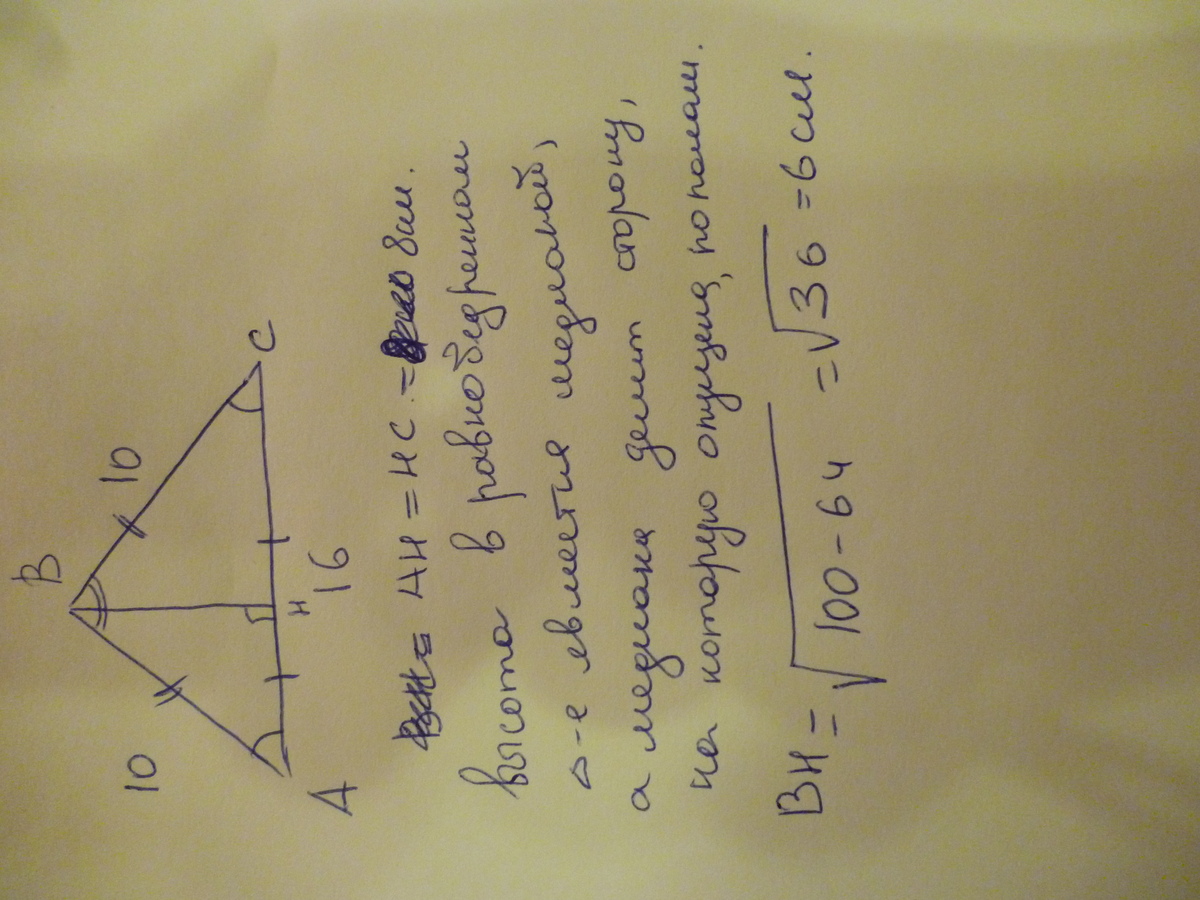 B
10
10
A
H
C
16
AH = HC = 8 см.
высота в равнобедренном
△-е является медианой,
а медиана делит сторону,
на которую опущена, пополам.
BH = √100 - 64 = √36 = 6 см.